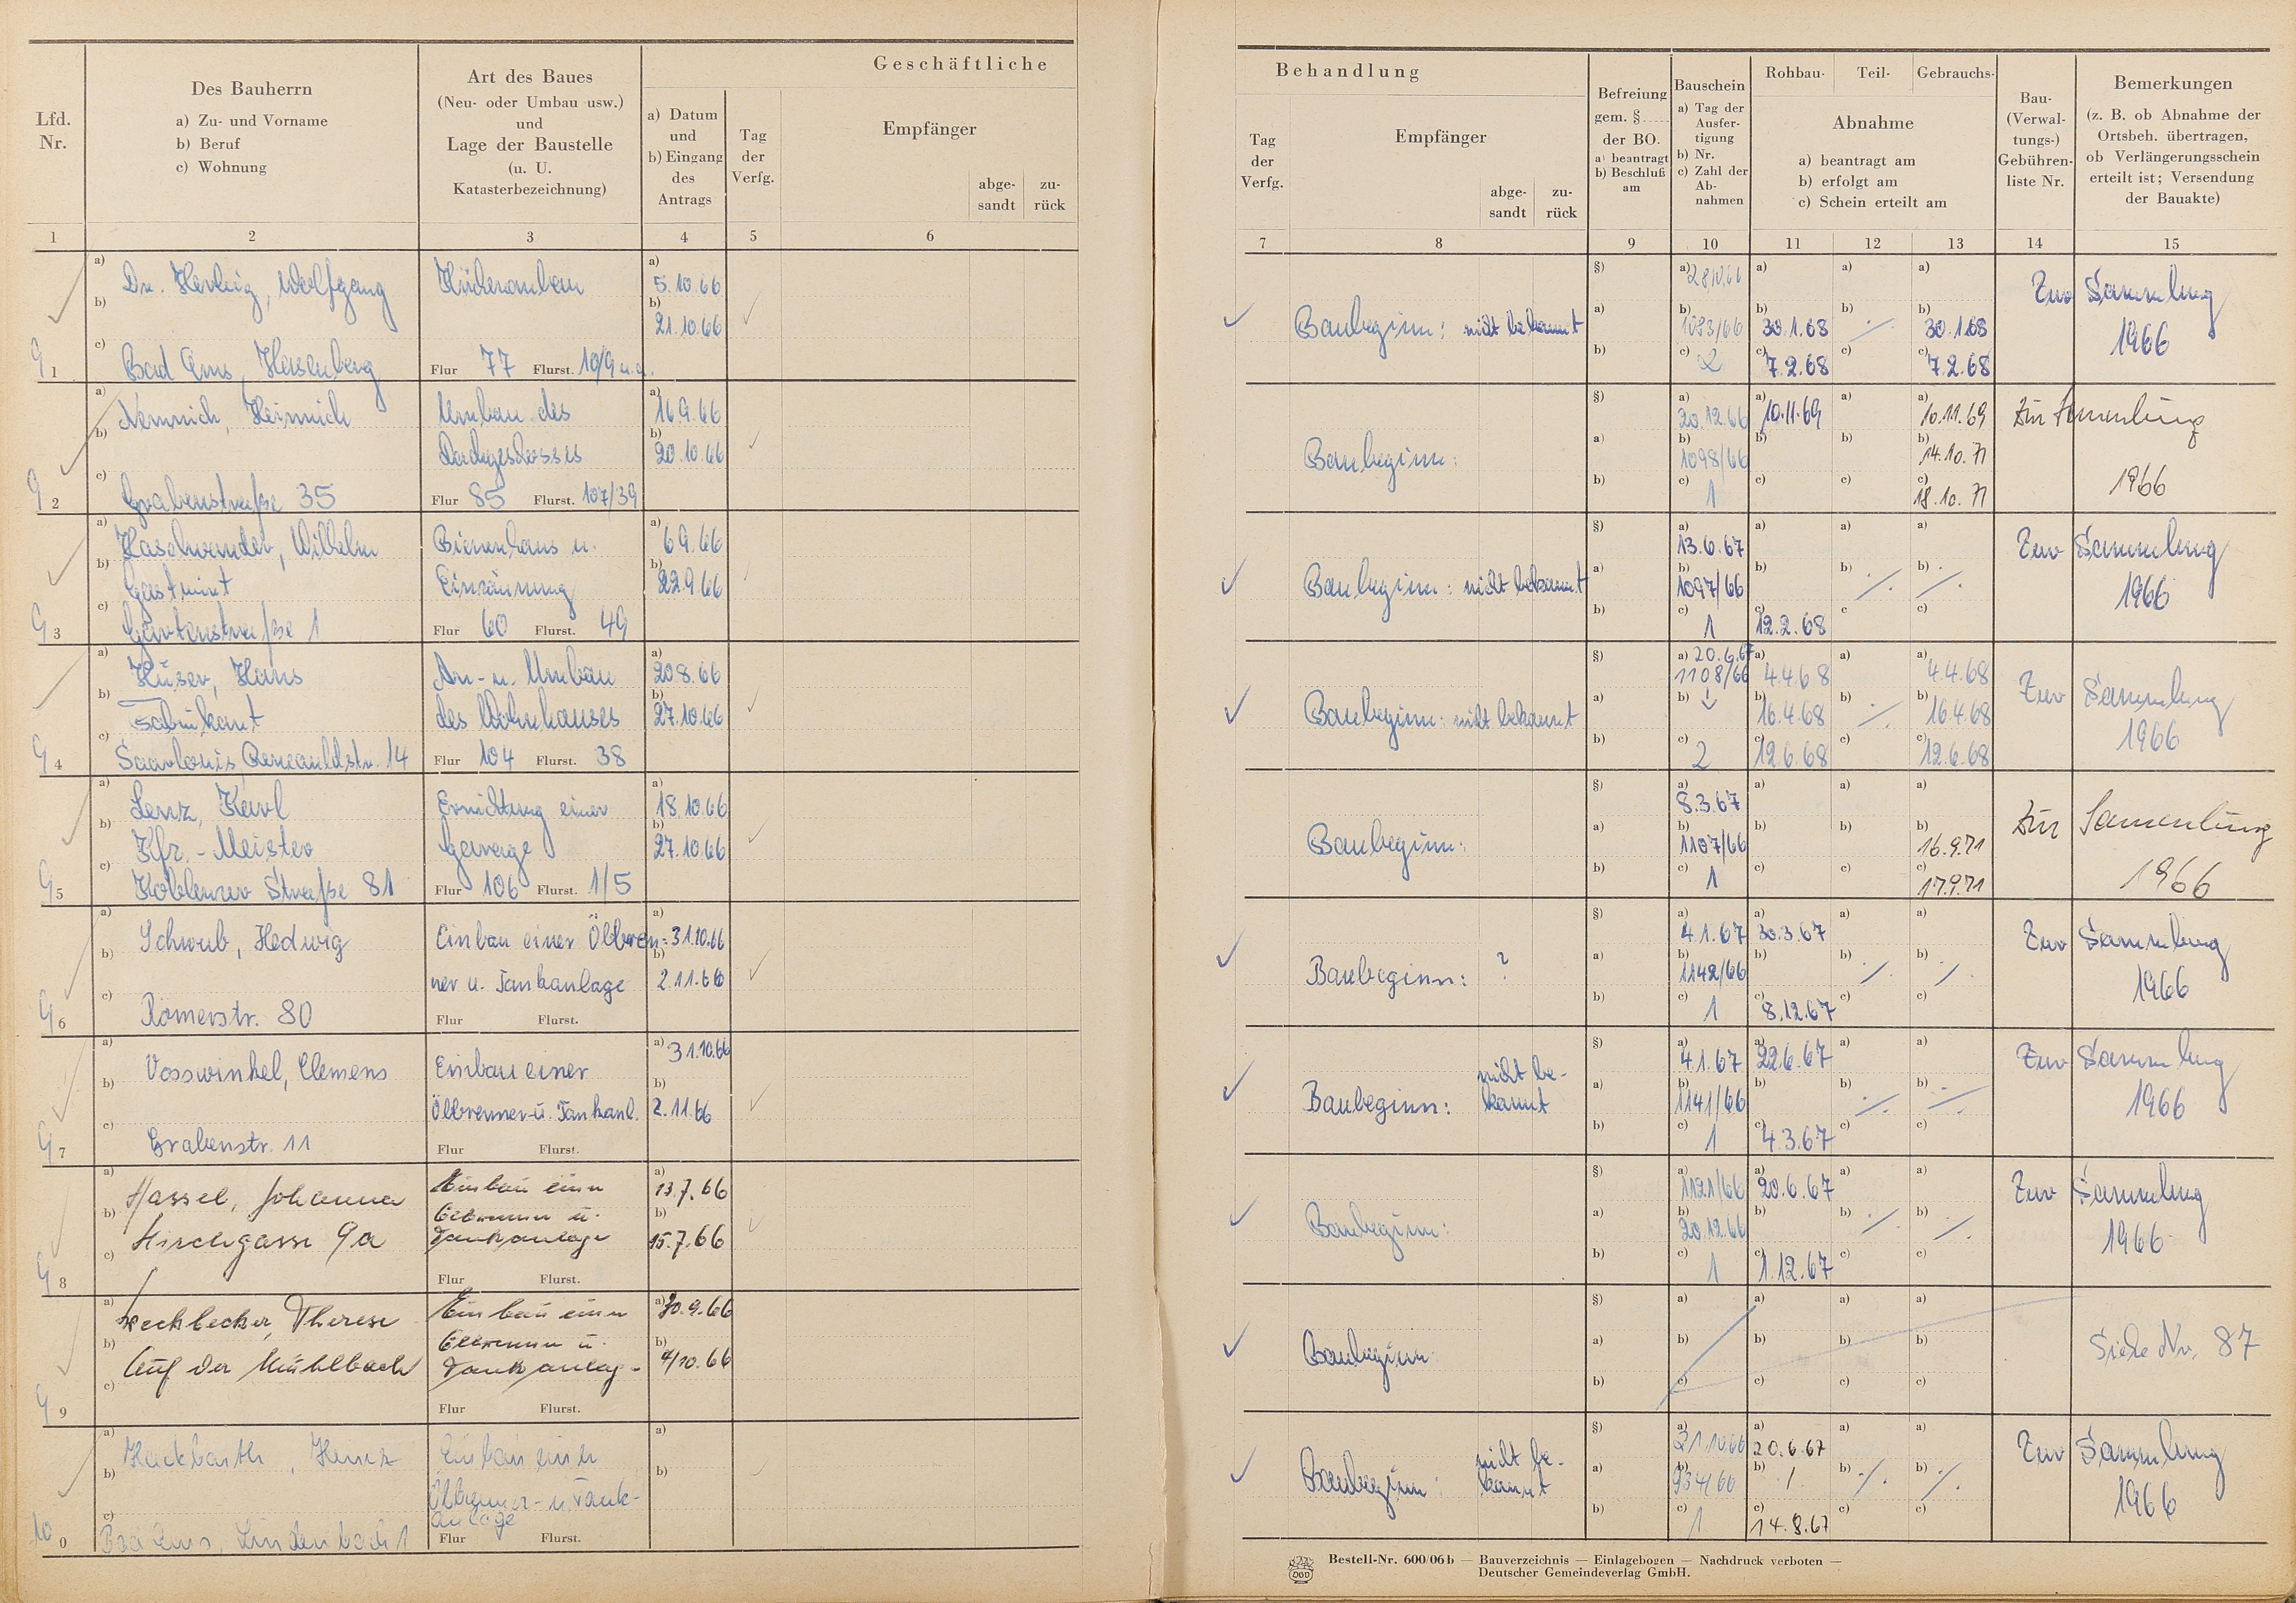 Geschäftliche
Lfd.
Nr.
Des Bauherrn
a) Zu- und Vorname
b) Beruf
c) Wohnung
Art des Baues
(Neu- oder Umbau usw.)
und
Lage der Baustelle
(u. U.
Katasterbezeichnung)
a) Datum
und
b) Eingang
des
Antrags
Tag
der
Verfg.
Empfänger
abge-
sandt
zu-
rück
1 2 3 4 5 6
a) Dr. Herbig, Wolfgang a) 5.10.66
b) b) 21.10.66
c) Bad Ems, Hasenberg
91 Flur 77 Flurst. 10/9 u.a.
a) Nemnich, Heinrich Umbau des a) 16.9.66
b) Dachgeschosses b) 20.10.66
c) Grabenstraße 35
92 Flur 85 Flurst. 107/39
a) Haschwender, Wilhelm Bienenhaus u. a) 6.9.66
b) Gastwirt Einzäunung b) 22.9.66
c) Gartenstraße 1
93 Flur 60 Flurst. 49
a) Hüser, Hans An- u. Umbau a) 20.8.66
b) Fabrikant des Wohnhauses b) 27.10.66
c) Saarlouis, 14
94 Flur 104 Flurst. 38
a) Lenz, Karl Errichtung einer a) 18.10.66
b) Kfz.-Meister Garage b) 27.10.66
c) Koblenzer Straße 81
95 Flur 106 Flurst. 1/5
a) Schwab, Hedwig Einbau einer Ölbren- a) 31.10.66
b) ner u. Tankanlage b) 2.11.66
c) Römerstr. 80
96 Flur Flurst.
a) Vosswinkel, Clemens Einbau einer a) 31.10.66
b) Ölbrenner- u. Tankanl. b) 2.11.66
c) Grabenstr. 11
97 Flur Flurst.
a) Hassel, Johanna Einbau einer a) 13.7.66
b) Kirchgasse 9a Ölbrenner u. b) 15.7.66
c) Tankanlage
98 Flur Flurst.
a) Zeckbecker, Therese Einbau einer a) 30.9.66
b) Auf der Mühlbach Ölbrenner u. b) 4/10.66
c) Tankanlage
99 Flur Flurst.
a) Hackbarth, Einbau einer a)
b) Ölbrenner- u. Tank- b)
c) Bad Ems, Lindenbach 1 anlage
100 Flur Flurst.
Behandlung
Tag
der
Verfg.
Empfänger
abge-
sandt
zu-
rück
Befreiung
gem. §
der BO.
a) beantragt
b) Beschluß
am
Bauschein
a) Tag der
Ausfer-
tigung
b) Nr.
c) Zahl der
Ab-
nahmen
Rohbau- Teil- Gebrauchs-
Abnahme
a) beantragt am
b) erfolgt am
c) Schein erteilt am
Bau-
(Verwal-
tungs-)
Gebühren-
liste Nr.
Bemerkungen
(z. B. ob Abnahme der
Ortsbeh. übertragen,
ob Verlängerungsschein
erteilt ist; Versendung
der Bauakte)
7 8 9 10 11 12 13 14 15
§) a) 28.10.66 a) a) a) Zur Sammlung
Baubeginn: nicht bekannt a) b) 1083/66 b) 30.1.68 b) ./. b) 30.1.68 1966
b) c) 2 c) 7.2.68 c) c) 7.2.68
§) a) 20.12.66 a) 10.11.69 a) a) 10.11.69 Zur Sammlung
Baubeginn: a) b) 1098/66 b) b) b) 14.10.71
b) c) 1 c) c) c) 18.10.71 1966
§) a) 13.6.67 a) a) a) Zur Sammlung
Baubeginn: nicht bekannt a) b) 1097/66 b) b) ./. b) ./. 1966
b) c) 1 c) 12.2.68 c c)
§) a) 20.6.67 a) 4.4.68 a) a) 4.4.68 Zur Sammlung
1108/66
Baubeginn: nicht bekannt a) b) b) 16.4.68 b) ./. b) 16.4.68 1966
b) c) 2 c) 12.6.68 c) c) 12.6.68
§) a) 8.3.67 a) a) a) Zur Sammlung
Baubeginn: a) b) 1107/66 b) b) b) 16.9.71
b) c) 1 c) c) c) 17.9.71 1966
§) a) 4.1.67 a) 30.3.67 a) a) Zur Sammlung
Baubeginn: ? a) b) 1142/66 b) b) ./. b) ./. 1966
b) c) 1 c) 8.12.67 c) c)
§) a) 4.1.67 a) 22.6.67 a) a) Zur Sammlung
Baubeginn: nicht be-
kannt a) b) 1141/66 b) b) ./. b) ./. 1966
b) c) 1 c) 4.3.67 c) c)
§) a) 1121/66 a) 20.6.67 a) a) Zur Sammlung
Baubeginn: a) b) 20.12.66 b) b) ./. b) ./. 1966
b) c) 1 c) 1.12.67 c) c)
§) a) a) a) a)
Baubeginn a) b) b) b) b) Siehe Nr. 87
b) c) c) c) c)
§) a) 21.10.66 a) 20.6.67 a) a) Zur Sammlung
Baubeginn: nicht be-
kannt a) b) 934/66 b) ./. b) ./. b) ./. 1966
b) c) 1 c) 14.8.67 c) c)
Bestell-Nr. 600/06 b — Bauverzeichnis — Einlagebogen — Nachdruck verboten —
Deutscher Gemeindeverlag GmbH.